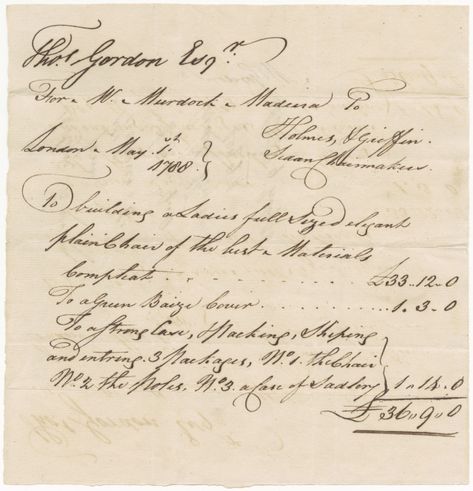 Thos. Gordon Esqr.
For W. Murdock Madeira To
Holmes, & Griffin.
London May 1st
1788
Sedan Chairmakers.
To building a Ladies full Sized elegant
plain Chair of the best Materials
Compleat . . . . . . . . . . £33..12..0
To a Green Baize Cover . . . . . . . . 1..3..0
To a Strong Case, Packing, Shiping
and entring 3 Packages, No. 1. the Chair
No. 2 the Poles, No. 3. a Case of Sadlery 1..14..0
£36..9..0